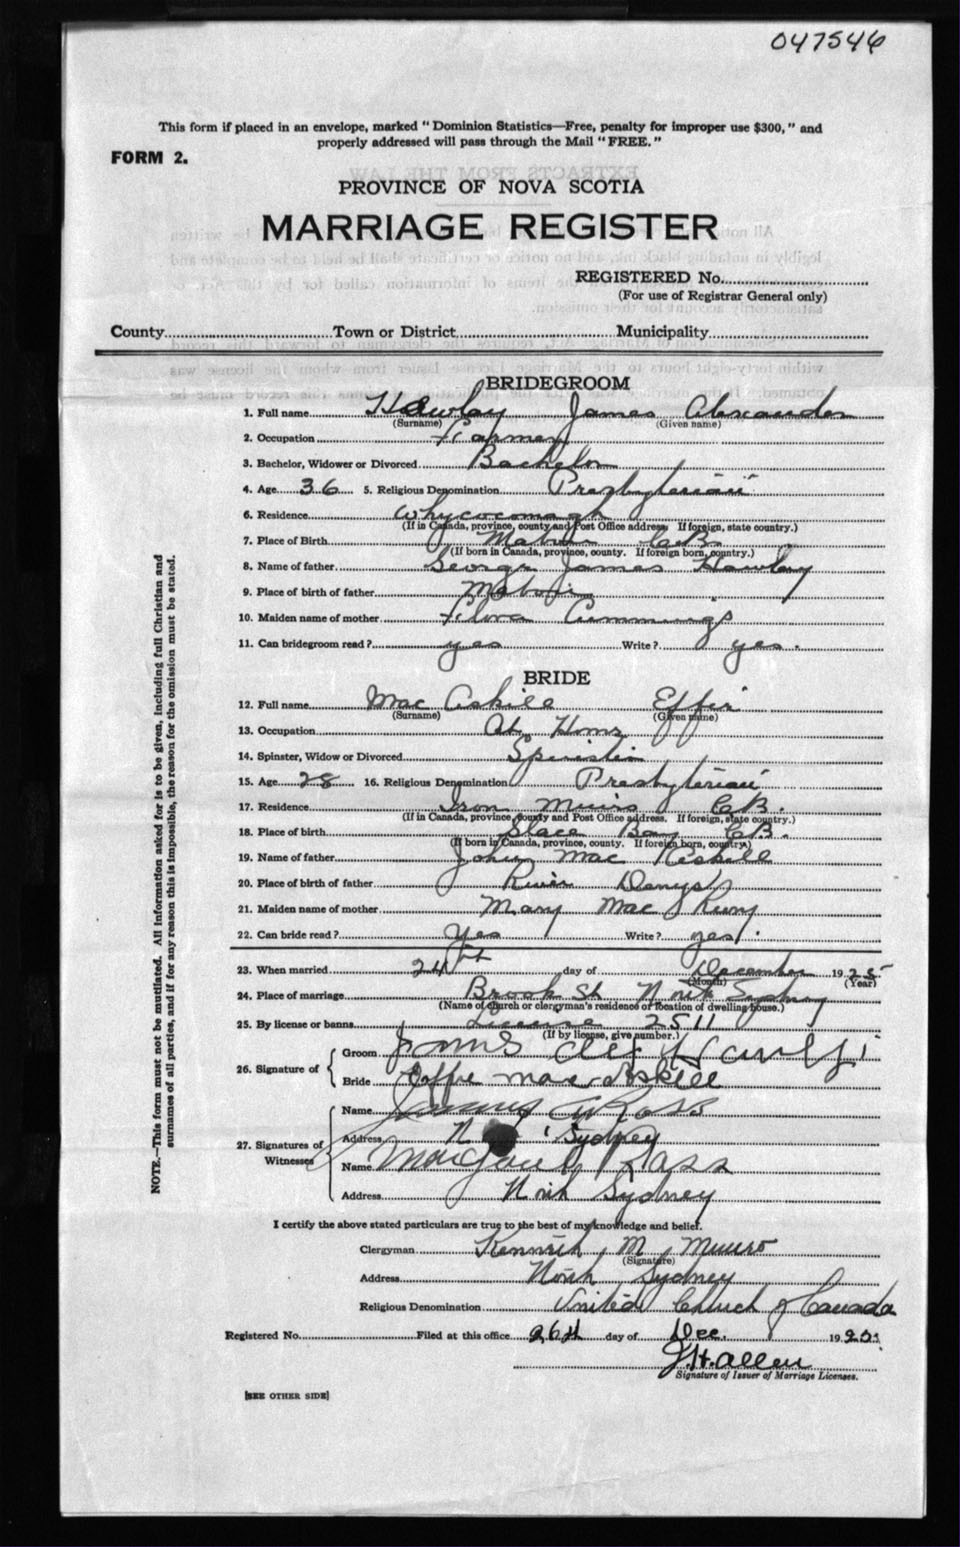 047546
This form if placed in an envelope, marked "Dominion Statistics—Free, penalty for improper use $300," and
properly addressed will pass through the Mail "FREE."
FORM 2.
PROVINCE OF NOVA SCOTIA
MARRIAGE REGISTER
REGISTERED No.
(For use of Registrar General only)
County Town or District Municipality
BRIDEGROOM
1. Full name Hawley James Alexander
(Surname) (Given name)
2. Occupation Farmer
3. Bachelor, Widower or Divorced Bachelor
4. Age 36 5. Religious Denomination Presbyterian
6. Residence Whycocomagh
(If in Canada, province, county and Post Office address. If foreign, state country.)
7. Place of Birth Mabou CB
(If born in Canada, province, county. If foreign born, country.)
8. Name of father George James Hawley
9. Place of birth of father Mabou
10. Maiden name of mother Flora Cummings
11. Can bridegroom read? yes Write? yes.
BRIDE
12. Full name Mac Askill Effie
(Surname) (Given name)
13. Occupation At Home
14. Spinster, Widow or Divorced Spinster
15. Age 28 16. Religious Denomination Presbyterian
17. Residence Iron Mines C.B.
(If in Canada, province, county and Post Office address. If foreign, state country.)
18. Place of birth Glace Bay C.B.
(If born in Canada, province, county. If foreign born, country.)
19. Name of father John Mac Askill
20. Place of birth of father River Denys
21. Maiden name of mother Mary Mac
22. Can bride read? Yes Write? yes.
23. When married 24th day of December 1925
(Month) (Year)
24. Place of marriage Brook St North Sydney
(Name of church or clergyman's residence or location of dwelling house.)
25. By license or banns License 2511
(If by license, give number.)
26. Signature of Groom James Alex Hawley
Bride Effie MacAskill
27. Signatures of Witnesses Name Ross
Address N Sydney
Name Margaret Ross
Address North Sydney
I certify the above stated particulars are true to the best of my knowledge and belief.
Clergyman Kenneth M Munro
(Signature)
Address North Sydney
Religious Denomination United Church of Canada
Registered No. Filed at this office 26th day of Dec. 1925
J.H. Allen
Signature of Issuer of Marriage Licenses.
[SEE OTHER SIDE]
NOTE.—This form must not be mutilated. All information asked for is to be given, including full Christian and
surnames of all parties, and if for any reason this is impossible, the reason for the omission must be stated.